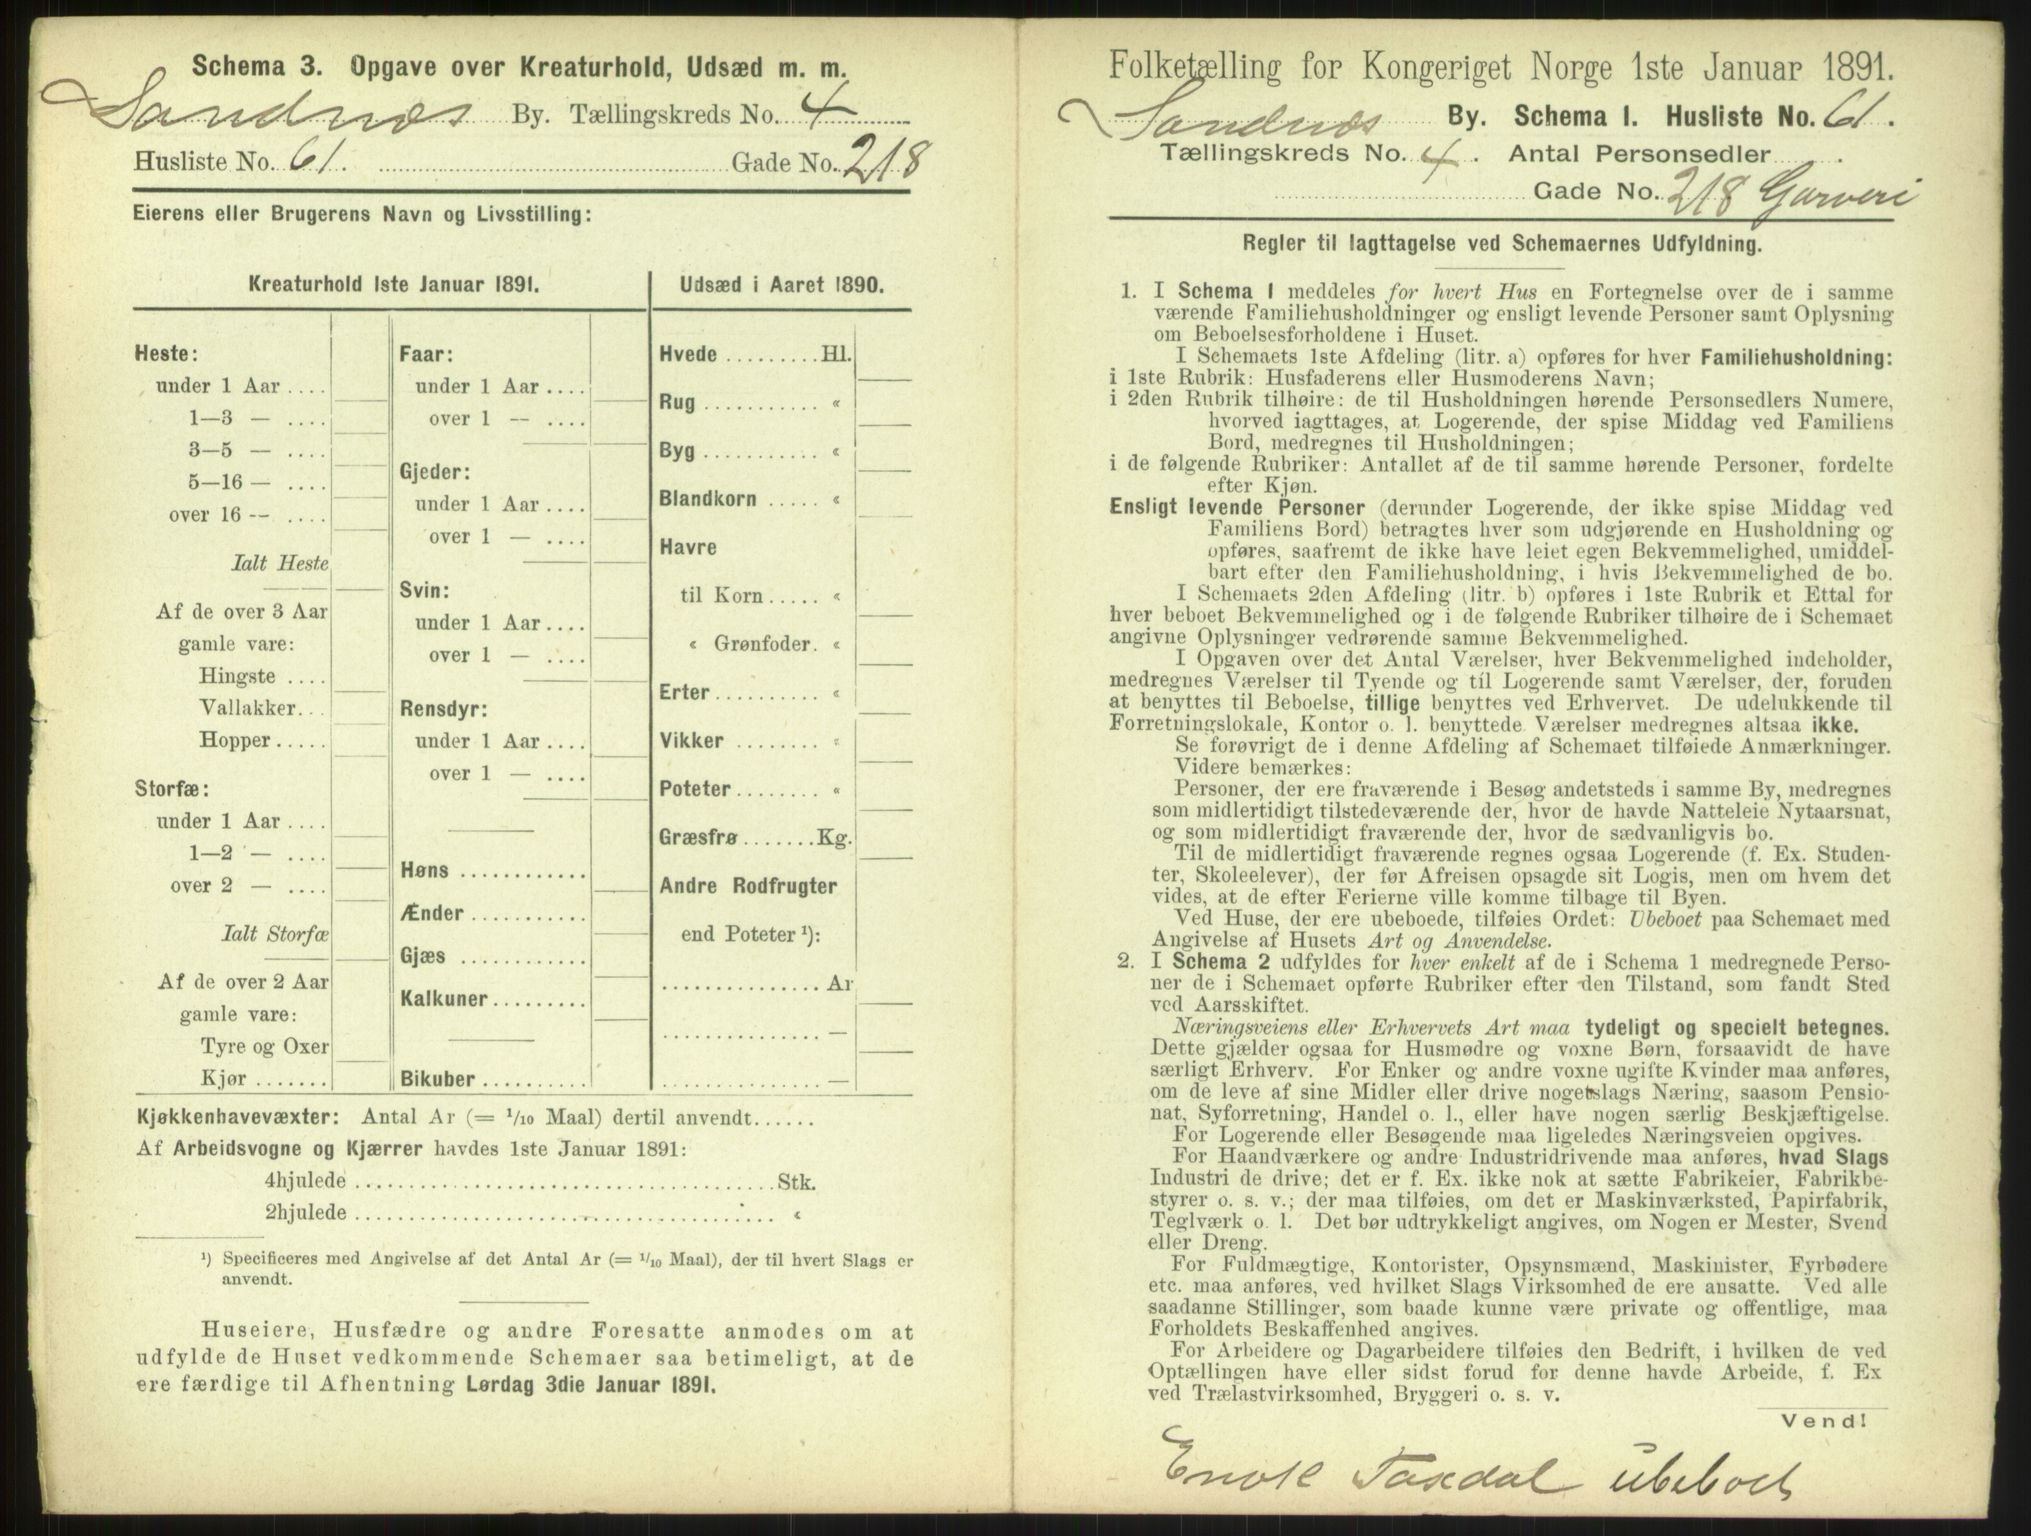 Schema 3. Opgave over Kreaturhold, Udsæd m. m.
Sandnæs By. Tællingskreds No. 4
Husliste No. 61. Gade No. 218
Eierens eller Brugerens Navn og Livsstilling:
Kreaturhold 1ste Januar 1891.
Heste:
under 1 Aar ....
1—3 — ....
3—5 — ....
5—16 — ....
over 16 -- ....
Ialt Heste
Af de over 3 Aar
gamle vare:
Hingste ....
Vallakker...
Hopper.....
Storfæ:
under 1 Aar ....
1—2 — ....
over 2 — ....
Ialt Storfæ
Af de over 2 Aar
gamle vare:
Tyre og Oxer
Kjør .......
Faar:
under 1 Aar ....
over 1 — ....
Gjeder:
under 1 Aar ....
over 1 — ....
Svin:
under 1 Aar ....
over 1 — ....
Rensdyr:
under 1 Aar ....
over 1 — ....
Høns ............
Ænder ...........
Gjæs ............
Kalkuner.........
Bikuber ..........
Udsæd i Aaret 1890.
Hvede .........Hl.
Rug ........... «
Byg ........... «
Blandkorn ..... «
Havre
til Korn..... «
« Grønfoder. «
Erter.......... «
Vikker ........ «
Poteter........ «
Græsfrø .......Kg.
Andre Rodfrugter
end Poteter ¹):
............... Ar
............... —
............... —
Kjøkkenhavevæxter: Antal Ar (= 1/10 Maal) dertil anvendt......
Af Arbeidsvogne og Kjærrer havdes 1ste Januar 1891:
4hjulede ........................................Stk.
2hjulede ........................................ «
¹) Specificeres med Angivelse af det Antal Ar (= 1/10 Maal), der til hvert Slags er
anvendt.
Huseiere, Husfædre og andre Foresatte anmodes om at
udfylde de Huset vedkommende Schemaer saa betimeligt, at de
ere færdige til Afhentning Lørdag 3die Januar 1891.
Folketælling for Kongeriget Norge 1ste Januar 1891.
Sandnæs By. Schema I. Husliste No. 61.
Tællingskreds No. 4. Antal Personsedler ........ .
Gade No. 218 Garveri
Regler til Iagttagelse ved Schemaernes Udfyldning.
1. I Schema I meddeles for hvert Hus en Fortegnelse over de i samme
værende Familiehusholdninger og ensligt levende Personer samt Oplysning
om Beboelsesforholdene i Huset.
I Schemaets 1ste Afdeling (litr. a) opføres for hver Familiehusholdning:
i 1ste Rubrik: Husfaderens eller Husmoderens Navn;
i 2den Rubrik tilhøire: de til Husholdningen hørende Personsedlers Numere,
hvorved iagttages, at Logerende, der spise Middag ved Familiens
Bord, medregnes til Husholdningen;
i de følgende Rubriker: Antallet af de til samme hørende Personer, fordelte
efter Kjøn.
Ensligt levende Personer (derunder Logerende, der ikke spise Middag ved
Familiens Bord) betragtes hver som udgjørende en Husholdning og
opføres, saafremt de ikke have leiet egen Bekvemmelighed, umiddel-
bart efter den Familiehusholdning, i hvis Bekvemmelighed de bo.
I Schemaets 2den Afdeling (litr. b) opføres i 1ste Rubrik et Ettal for
hver beboet Bekvemmelighed og i de følgende Rubriker tilhøire de i Schemaet
angivne Oplysninger vedrørende samme Bekvemmelighed.
I Opgaven over det Antal Værelser, hver Bekvemmelighed indeholder,
medregnes Værelser til Tyende og til Logerende samt Værelser, der, foruden
at benyttes til Beboelse, tillige benyttes ved Erhvervet. De udelukkende til
Forretningslokale, Kontor o. l. benyttede Værelser medregnes altsaa ikke.
Se forøvrigt de i denne Afdeling af Schemaet tilføiede Anmærkninger.
Videre bemærkes:
Personer, der ere fraværende i Besøg andetsteds i samme By, medregnes
som midlertidigt tilstedeværende der, hvor de havde Natteleie Nytaarsnat,
og som midlertidigt fraværende der, hvor de sædvanligvis bo.
Til de midlertidigt fraværende regnes ogsaa Logerende (f. Ex. Studen-
ter, Skoleelever), der før Afreisen opsagde sit Logis, men om hvem det
vides, at de efter Ferierne ville komme tilbage til Byen.
Ved Huse, der ere ubeboede, tilføies Ordet: Ubeboet paa Schemaet med
Angivelse af Husets Art og Anvendelse.
2. I Schema 2 udfyldes for hver enkelt af de i Schema 1 medregnede Perso-
ner de i Schemaet opførte Rubriker efter den Tilstand, som fandt Sted
ved Aarsskiftet.
Næringsveiens eller Erhvervets Art maa tydeligt og specielt betegnes.
Dette gjælder ogsaa for Husmødre og voxne Børn, forsaavidt de have
særligt Erhverv. For Enker og andre voxne ugifte Kvinder maa anføres,
om de leve af sine Midler eller drive nogetslags Næring, saasom Pensio-
nat, Syforretning, Handel o. l., eller have nogen særlig Beskjæftigelse.
For Logerende eller Besøgende maa ligeledes Næringsveien opgives.
For Haandværkere og andre Industridrivende maa anføres, hvad Slags
Industri de drive; det er f. Ex. ikke nok at sætte Fabrikeier, Fabrikbe-
styrer o. s. v.; der maa tilføies, om det er Maskinværksted, Papirfabrik,
Teglværk o. l. Det bør udtrykkeligt angives, om Nogen er Mester, Svend
eller Dreng.
For Fuldmægtige, Kontorister, Opsynsmænd, Maskinister, Fyrbødere
etc. maa anføres, ved hvilket Slags Virksomhed de ere ansatte. Ved alle
saadanne Stillinger, som baade kunne være private og offentlige, maa
Forholdets Beskaffenhed angives.
For Arbeidere og Dagarbeidere tilføies den Bedrift, i hvilken de ved
Optællingen have eller sidst forud for denne havde Arbeide, f. Ex
ved Trælastvirksomhed, Bryggeri o. s. v.
Vend!
Enok Taxdal ubeboet